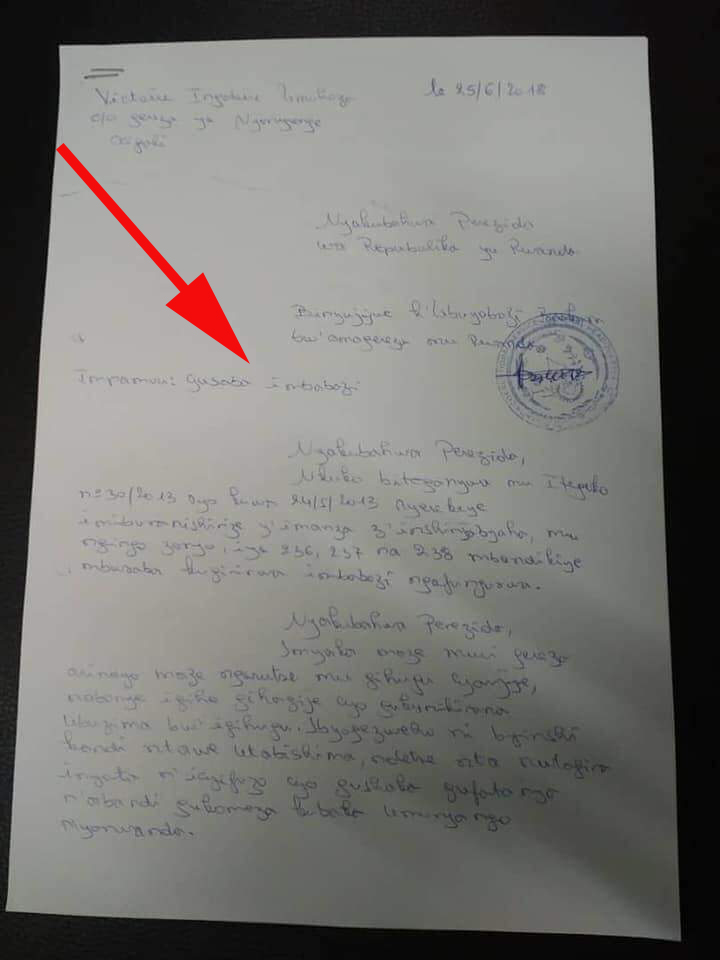 Victoire Ingabire Umuhoza
le 25/6/2018
c/o gereza ya Nyarugenge
Kigali
Nyakubahwa Perezida
wa Repubulika yu Rwanda
Binyujijwe k'Ubuyobozi
bw'amagereza mu Rwanda
Impamvu: Gusaba imbabazi
Nyakubahwa Perezida,
Nkuko biteganywa mu Itegeko
n° 30/2013 ryo kuwa 24/5/2013 ryerekeye
imiburanishirize y'imanza z'inshinjabyaha, mu
ngingo zaryo, iya 236, 237 na 238 mbandikiye
mbasaba kugirirwa imbabazi ngafungurwa.
Nyakubahwa Perezida,
Imyaka maze muri gereza
ari nayo maze ngarutse mu gihugu cyanjye,
nabonye igihe gihagije cyo gukurikirana
ubuzima bw'igihugu. Ibyagezweho ni byinshi
kandi ntawe utabishima, ndetse nta nutagira
inyota n'icyifuzo cyo gushaka gufatanya
n'abandi gukomeza kubaka umuryango
Nyarwanda.